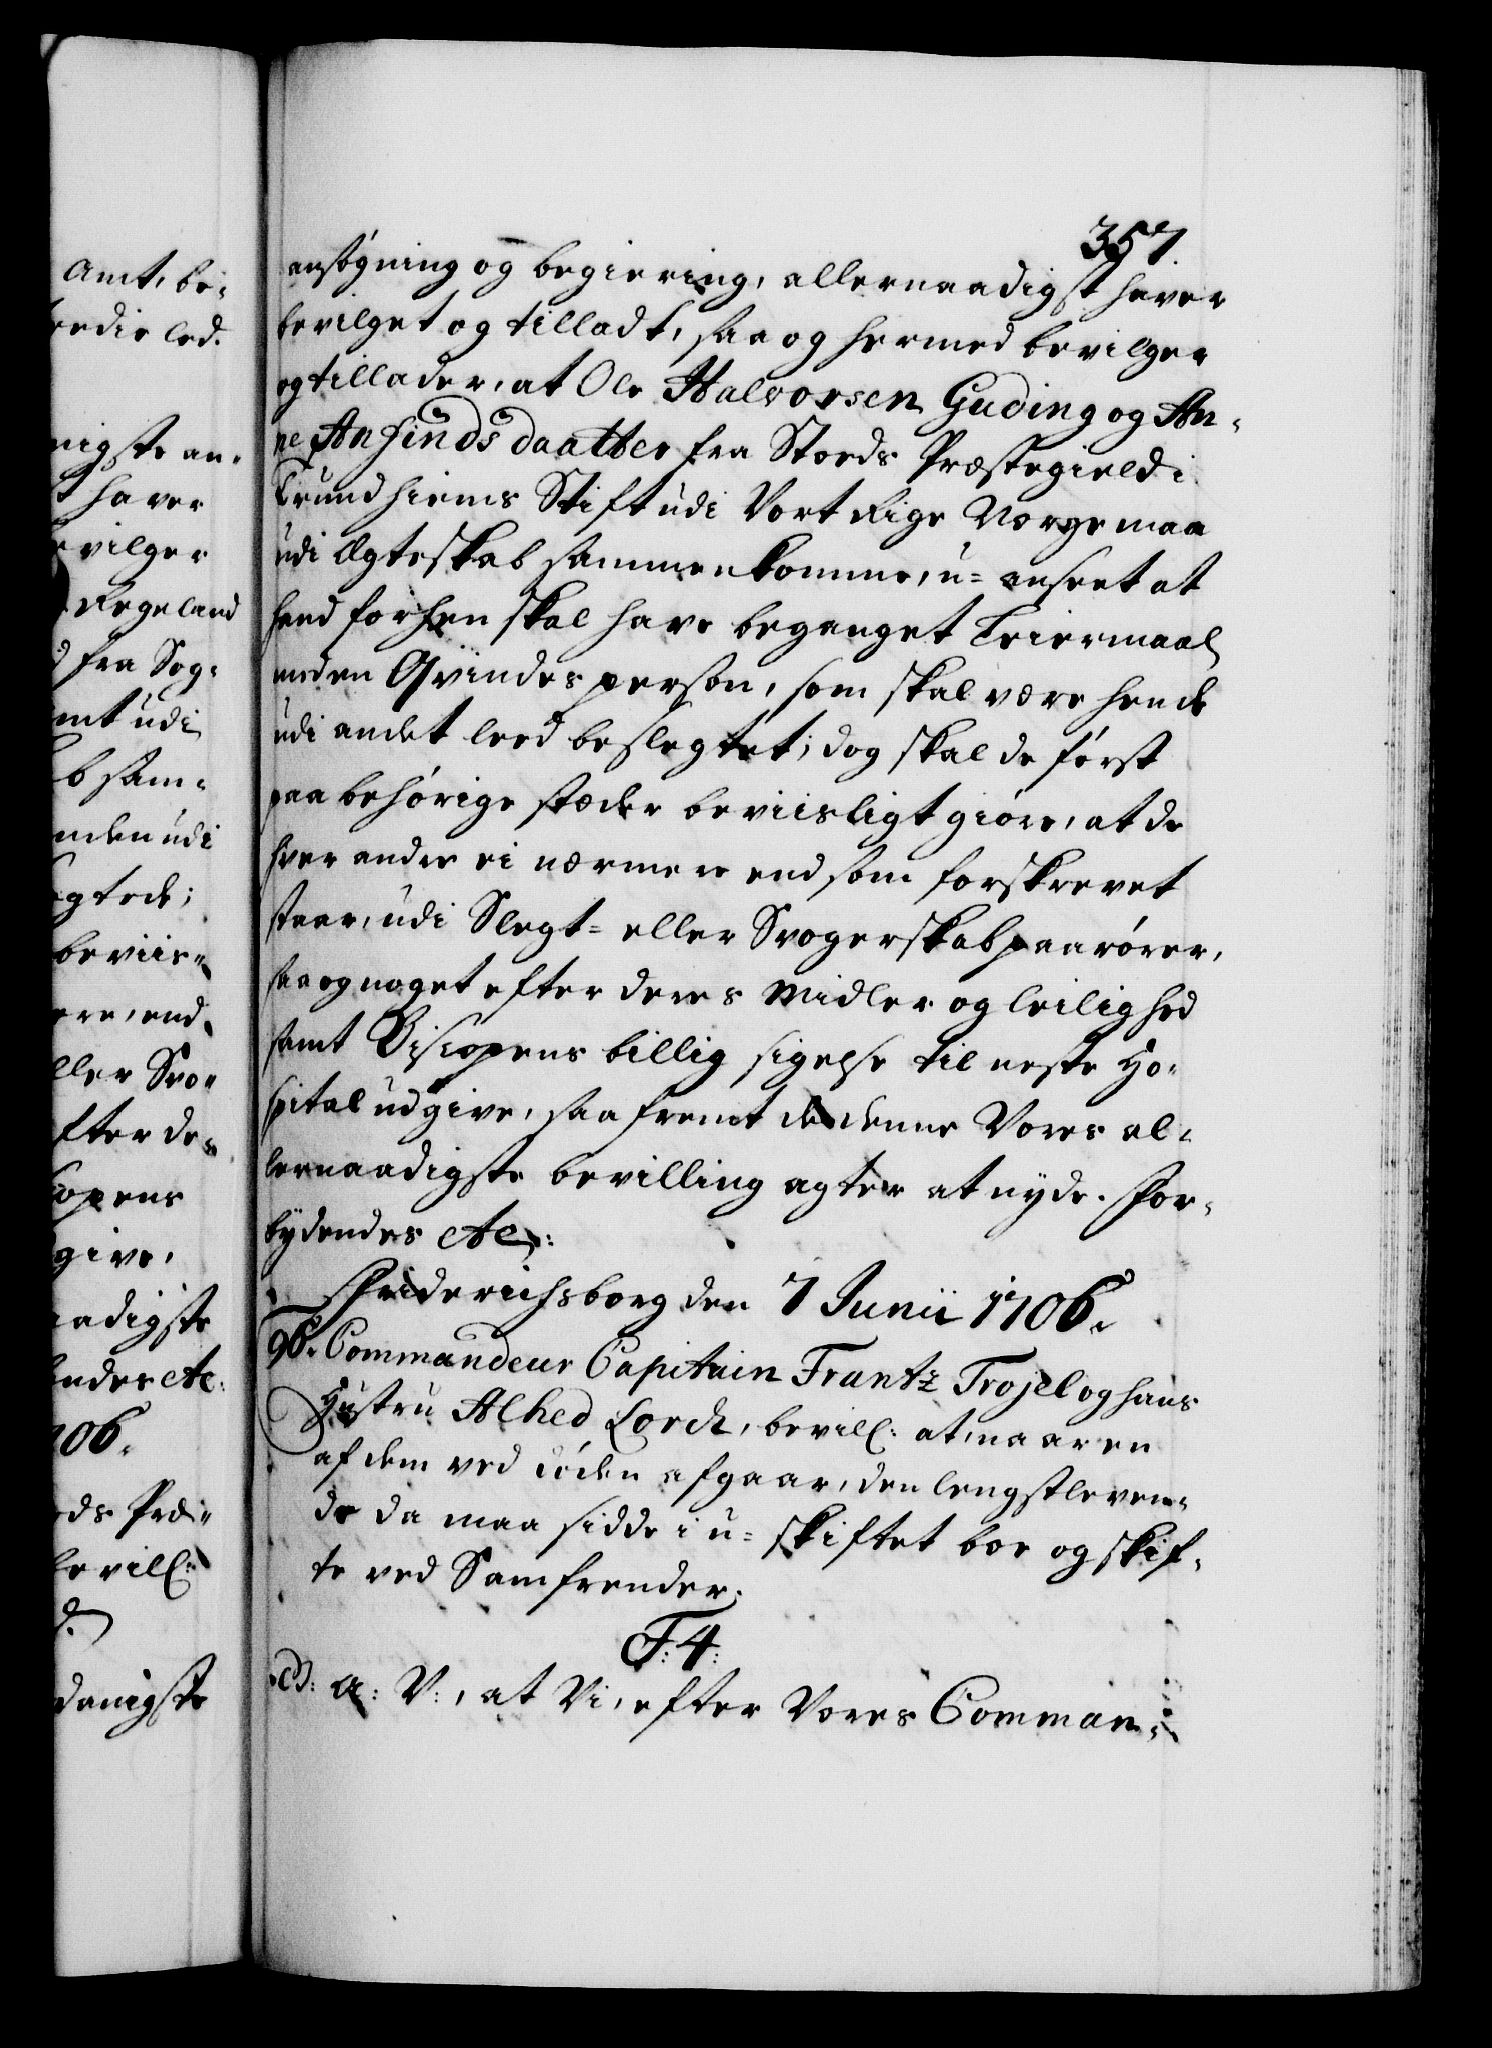 Amt, be-
tredie led.
nigste an-
haver
bevilger
Rogeland
fra Sog-
mt udi
b sam-
nden udi
egtede;
beviis-
ere, end
ller Svo-
fter de-
opens
give,
aadigste
endes etc:
706.
ds Præ-
bevill:
d.
danigste
357.
ansögning og begiering, allernaadigst haver
bevilget og tilladt, saa og hermed bevilger
og tillader, at Ole Halvorsen Guding og An-
ne Anfinds daatter fra Stords Præstegield i
Trundhiems Stift udi Vort Rige Norge maa
udi Egteskab sammenkomme, u-anseet at
hand forhen skal have begaaget Leiermaal
med en Qvindes person, som skal være hende
udi andet leed beslegtet; dog skal de först
paa behörige stæder beviisligt giöre, at de
hver andre ei nærmere end som forskrevet
staar, udi Slegt- eller Svogerskab paarörer,
saa og noget efter deres Midler og leilighed
samt Biscopens billig sigelse til neste Ho-
spital udgive, saa fremt de denne Vores al-
lernaadigste bevilling agter at nyde. For-
bydendes etc:
Friderichsborg den 7 Junii 1706.
96. Commandeur Capitain Frantz Trojel og hans
Hustru Alhed Lorck, bevill: at, naar en
af dem ved döden afgaar, den lengstleven-
de da maa sidde i u-skiftet boe og skif-
te ved Samfrender.
F: 4:
G: A: V:, at Vi, efter Vores Comman-